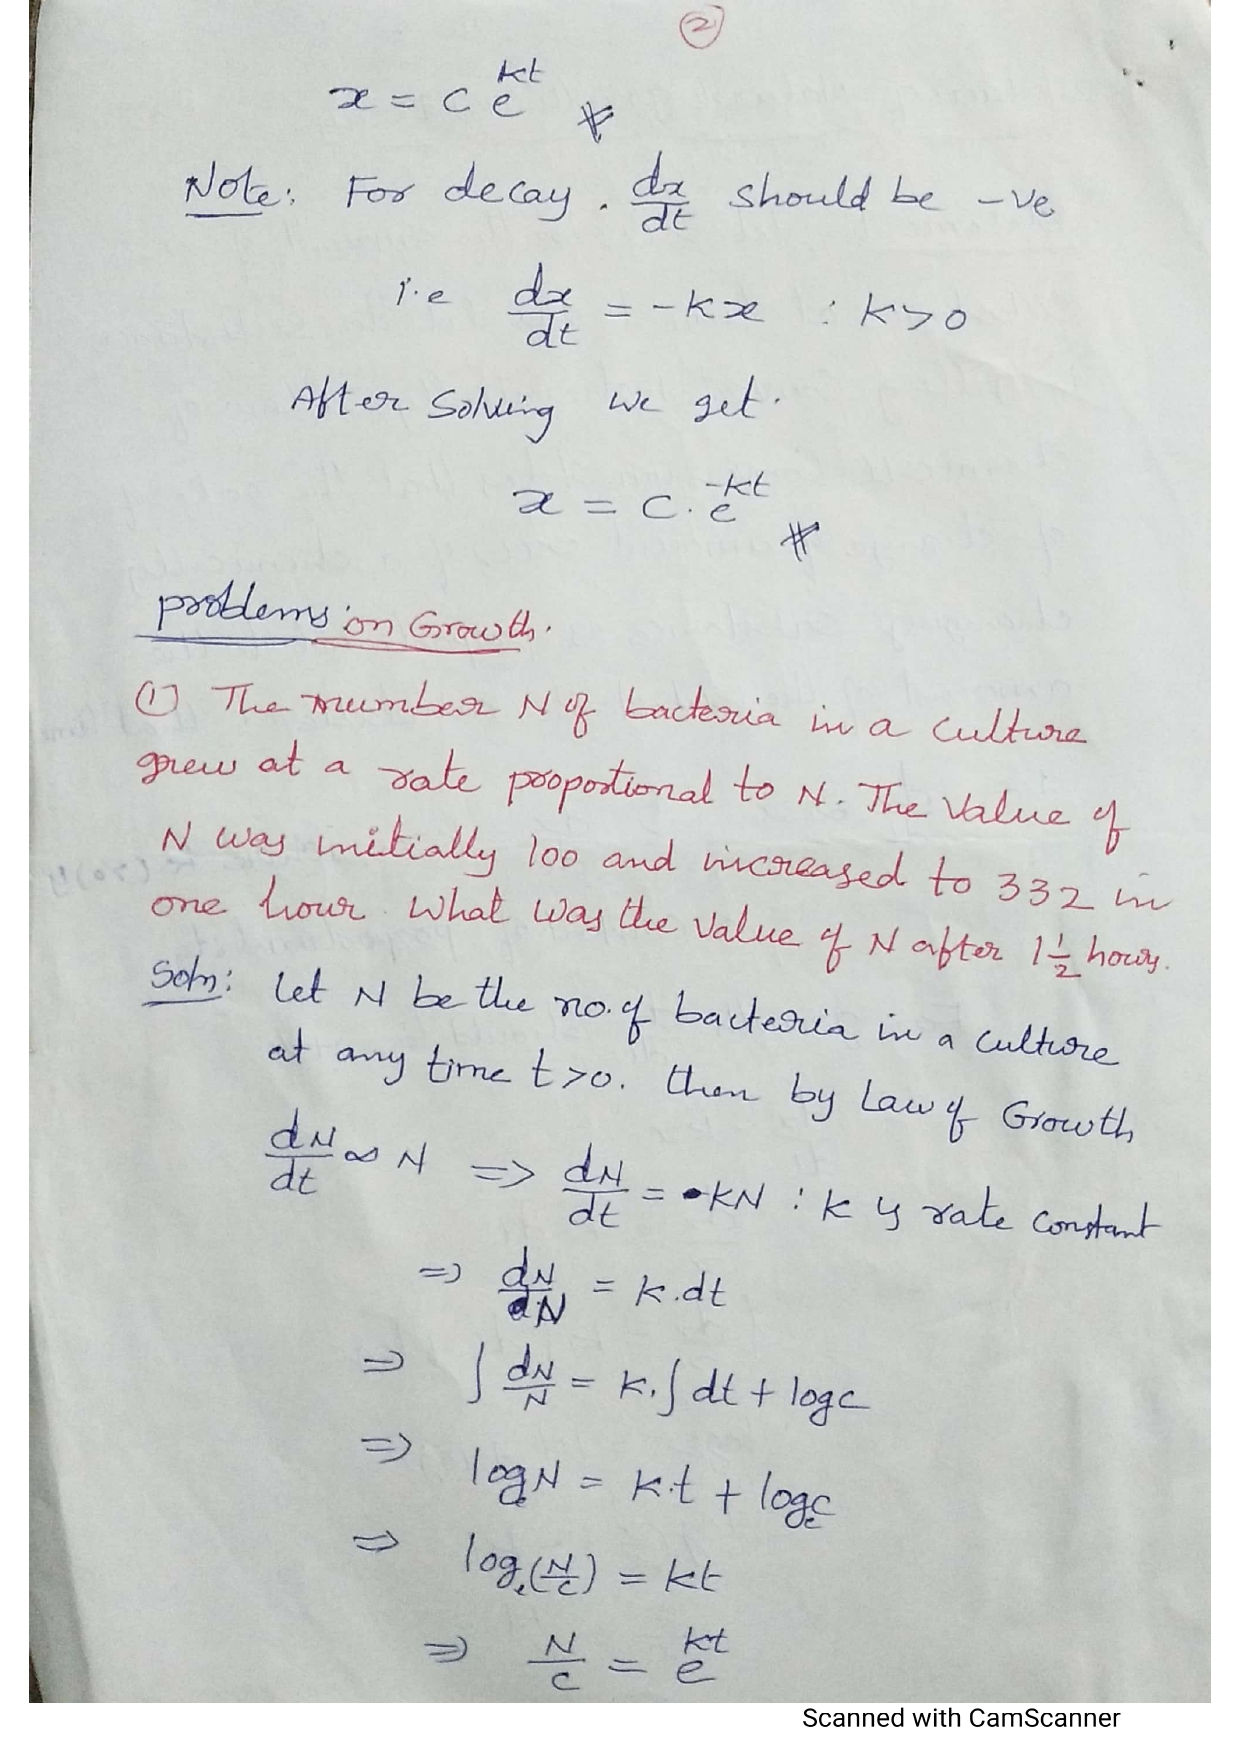 2
x = c e^{kt}
Note: For decay . dx/dt should be -ve
i.e dx/dt = -kx : k>0
After Solving we get.
x = c. e^{-kt}
problems on Growth.
(1) The number N of bacteria in a culture
grew at a rate proportional to N. The Value of
N was initially 100 and increased to 332 in
one hour. What was the Value of N after 1 1/2 hours.
Soln: Let N be the no. of bacteria in a culture
at any time t>0. then by Law of Growth
dN/dt ∝ N => dN/dt = kN : k is rate constant
=> dN/N = k.dt
=> ∫ dN/N = k.∫ dt + logc
=> log_e N = k.t + log_e c
=> log_e (N/c) = kt
=> N/c = e^{kt}
Scanned with CamScanner